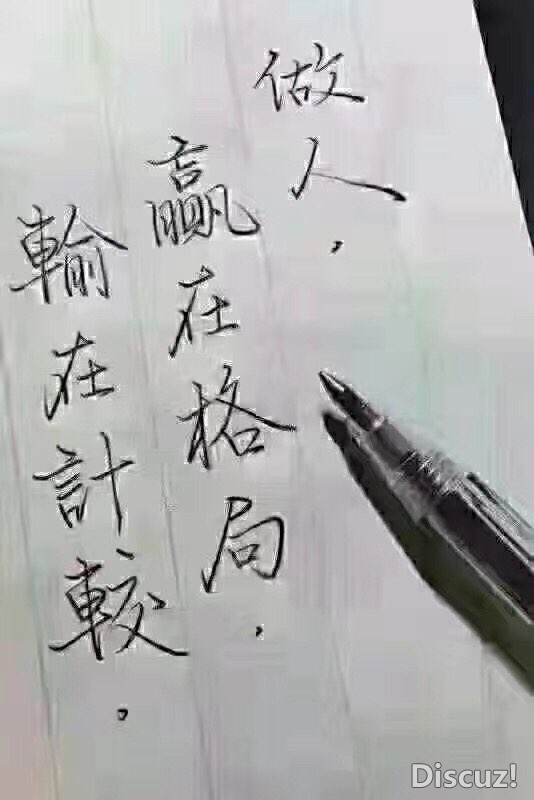 做人，
赢在格局，
輸在計較．
Discuz!